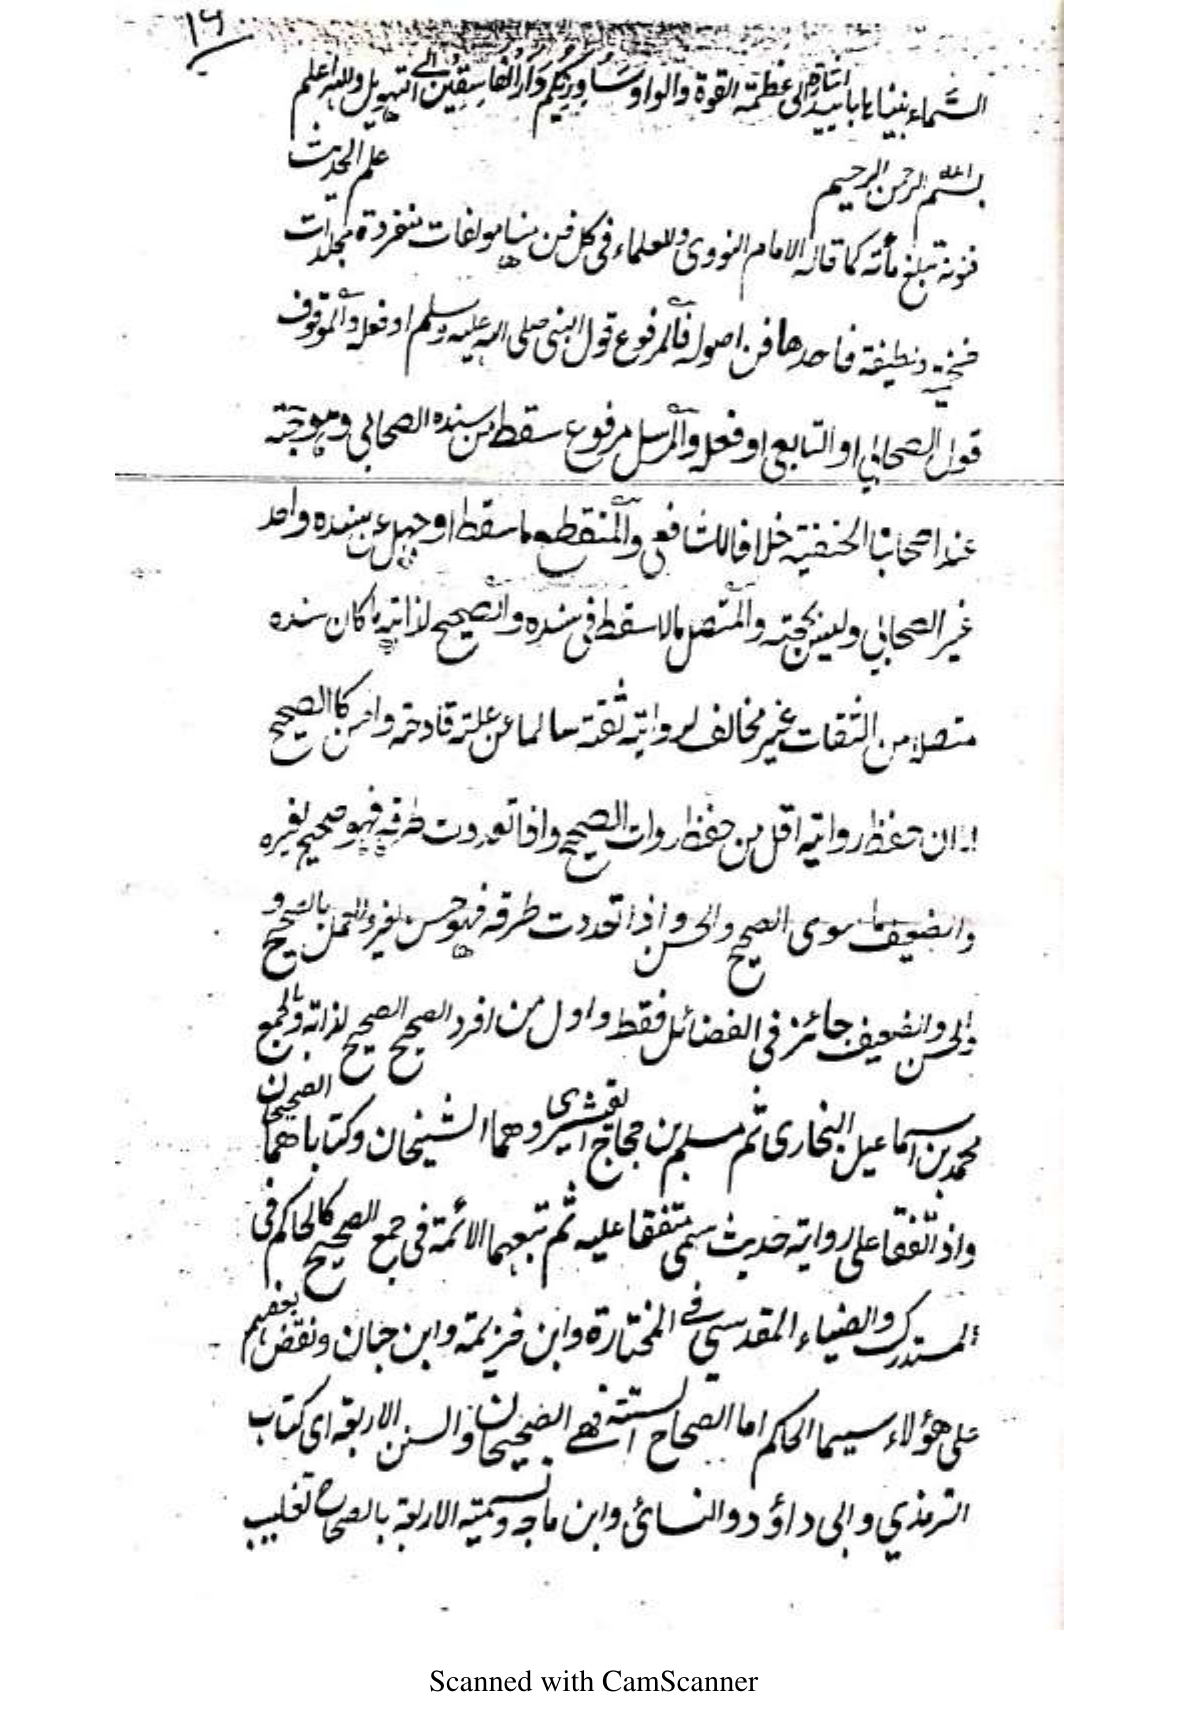 ١٦
السَّماء بنيناها بأييد اشارة الى عظمة القوة والواو سَأُورِيْكُم دَارَ الفَاسِقِيْن الى التهويل والله اعلم
بسم الله الرحمن الرحيم علم الحديث
فنونه تبلغ مأته كما قاله الامام النووى وللعلماء فى كل فن منها مولفات منفردة مجلدات
ضخيمة ونطيفة فاحدها فن اصوله فالمرفوع قول النبى صلى الله عليه وسلم او فعله والموقوف
قول الصحابي او التابعى او فعله والمرسل مرفوع سقط من سنده الصحابي وهو حجّة
عند اصحابنا الحنفية خلافا للشافعى والمنقطع ما سقط او جهل من سنده واحد
غير الصحابي وليس بحجته والمتصل ما لا سقط فى سنده والصحيح لذاته ما كان سنده
متصلا من الثقات غير مخالف لرواية ثقته سالما عن علته قادحة والحسن كالصحيح
الا ان حفظ رواته اقل من حفظ روات الصحيح واذا تعددت طرقه فهو صحيح لغيره
والضعيف ما سوى الصحيح والحسن واذا تعددت طرقه فهو حسن لغيره والعمل بالصحيح و
والحسن والضعيف جائز فى الفضائل فقط واول من افرد الصحيح الصحيح لذاته بالجمع
محمد بن اسماعيل البخارى ثم مسلم بن حجاج القشيرى وهما الشيخان وكتاباهما الصحيحان
واذ اتّفقا على رواية حديث سمى متفقا عليه ثم تبعهما الائمة فى جمع الصحيح كالحاكم فى
المستدرك والضياء المقدسي فى المختارة وابن خزيمة وابن حبان ونقض بعضهم
على هؤلاء سيما الحاكم اما الصحاح الستة فهى الصحيحان والسنن الاربعة اى كتاب
الترمذي وابى داؤد والنسائ وابن ماجه وتسمية الاربعة بالصحاح تغليب
Scanned with CamScanner